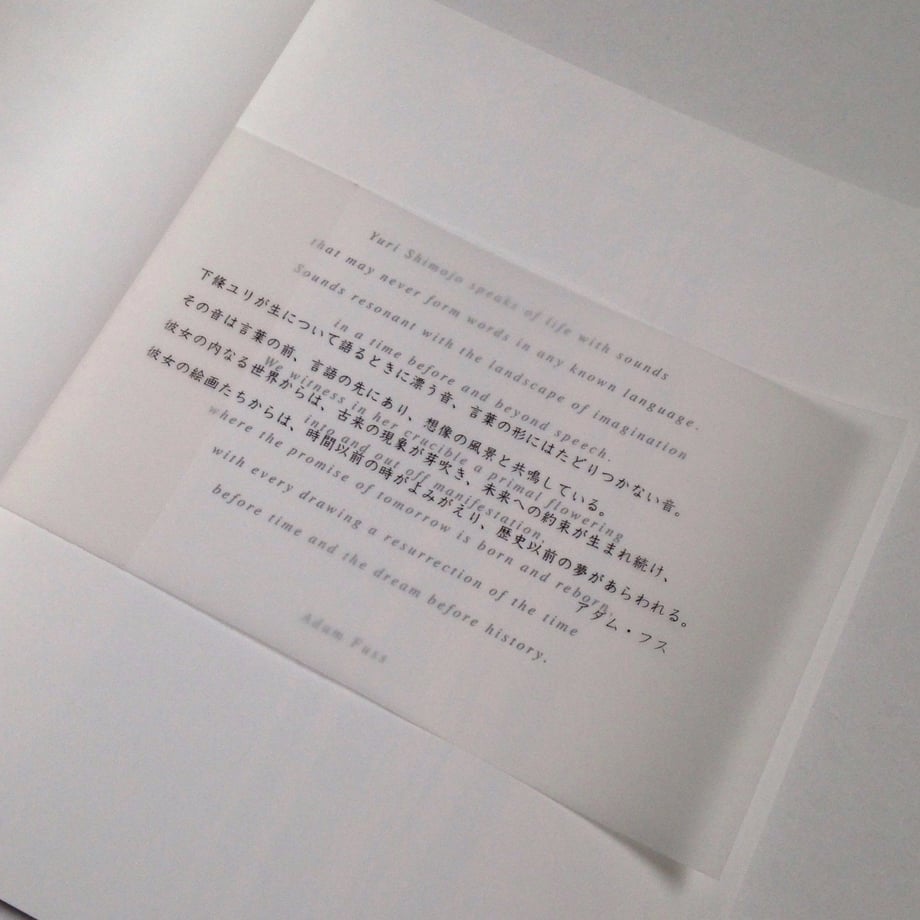 Yuri Shimojo speaks of life with sounds
that may never form words in any known language.
Sounds resonant with the landscape of imagination
in a time before and beyond speech.
We witness in her crucible a primal flowering
into and out off manifestation,
where the promise of tomorrow is born and reborn.
with every drawing a resurrection of the time
before time and the dream before history.
Adam Fuss
下條ユリが生について語るときに漂う音、言葉の形にはたどりつかない音。
その音は言葉の前、言語の先にあり、想像の風景と共鳴している。
彼女の内なる世界からは、古来の現象が芽吹き、未来への約束が生まれ続け、
彼女の絵画たちからは、時間以前の時がよみがえり、歴史以前の夢があらわれる。
アダム・フス